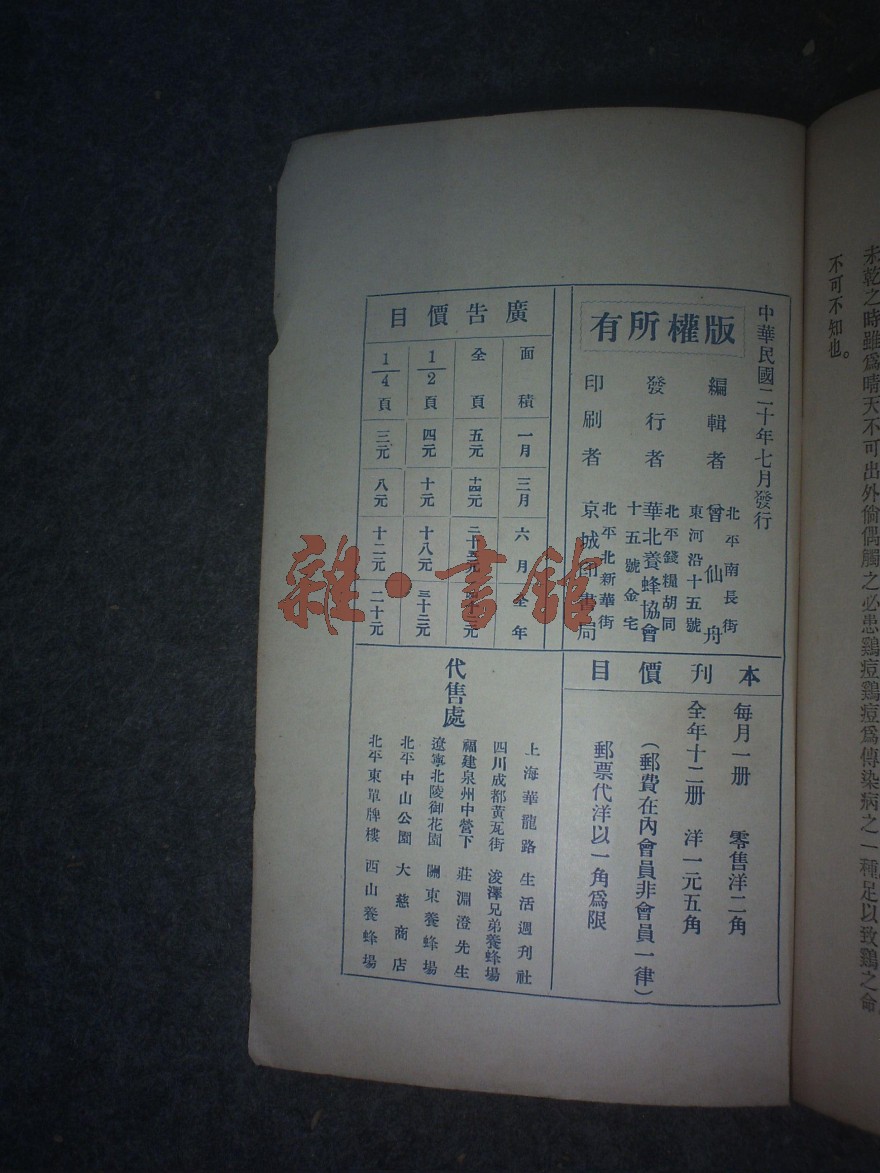 未乾之時雖爲晴天不可出外偷偶觸之必患鷄痘鷄痘爲傳染病之一種足以致鷄之命
不可不知也。
中華民國二十年七月發行
版權所有
編輯者 曾仙舟
北平南長街
東河沿十五號
發行者 華北養蜂協會
北平錢糧胡同
十五號金宅
印刷者 京城印書局
北平北新華街
廣告價目
面積 一月 三月 六月 全年
全頁 五元 十四元
1/2頁 四元 十元 十八元 三十三元
1/4頁 三元 八元 十二元 二十元
本刊價目
每月一册 零售洋二角
全年十二册 洋一元五角
(郵費在內會員非會員一律)
郵票代洋以一角爲限
代售處
上海華龍路 生活週刊社
四川成都黃瓦街 浚澤兄弟養蜂場
福建泉州中營下 莊淵澄先生
遼寧北陵御花園 關東養蜂場
北平中山公園 大慈商店
北平東單牌樓 西山養蜂場
雜·書館